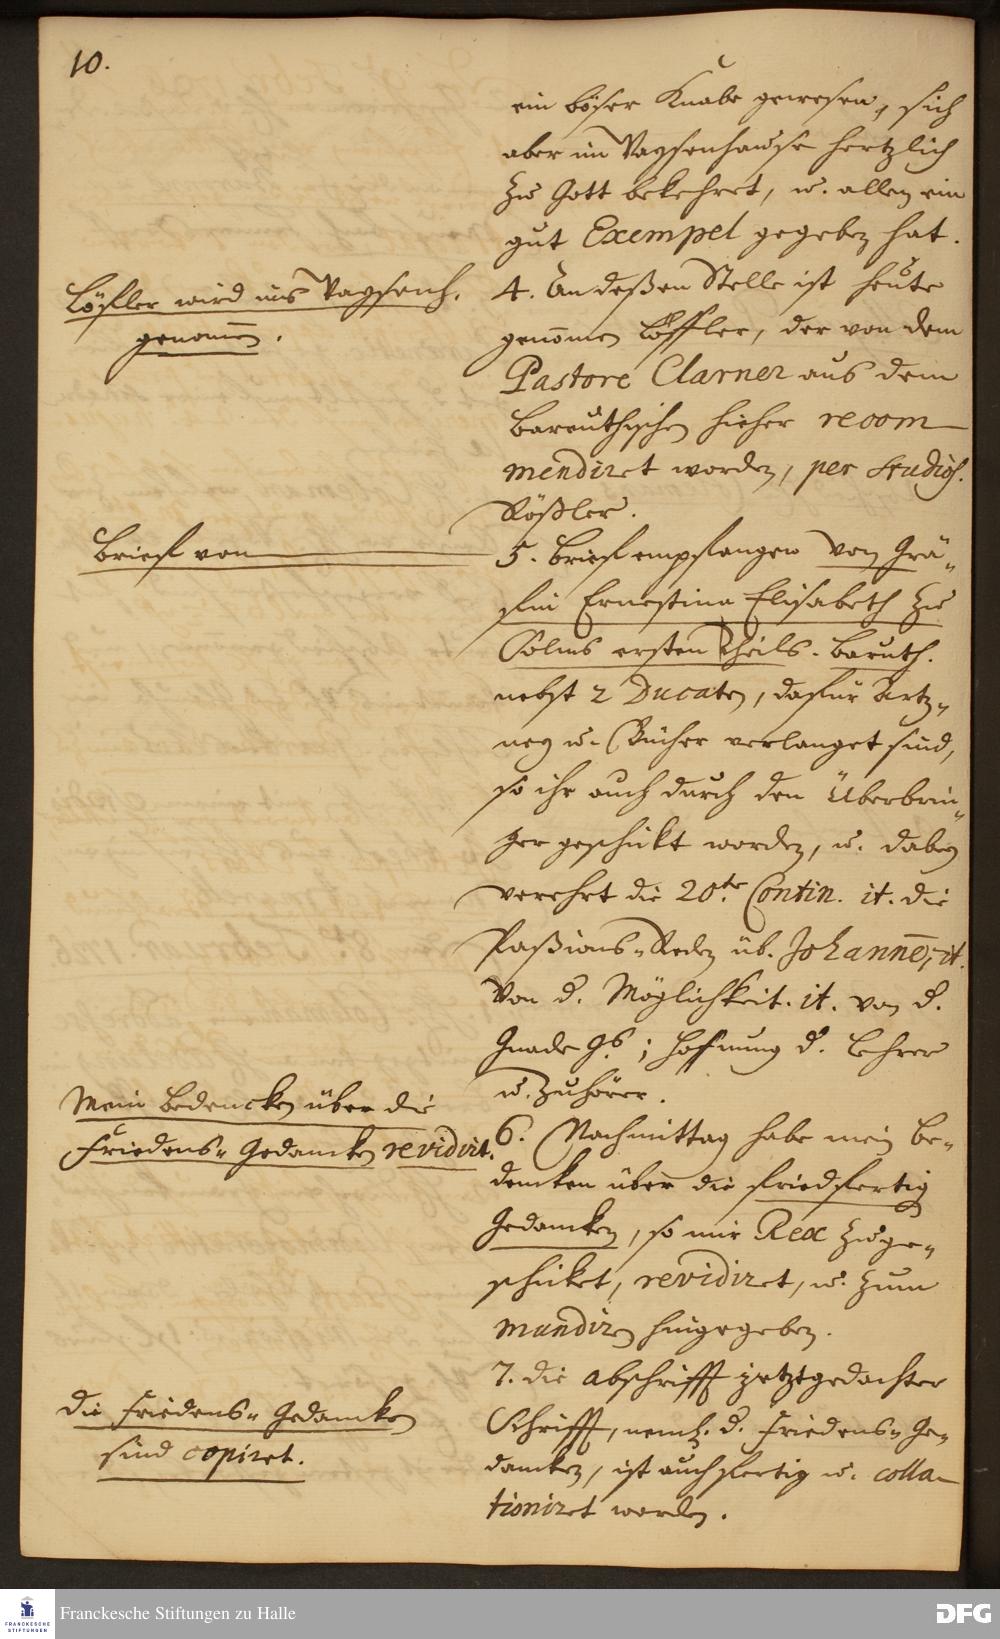 10.
ein böser Knabe gewesen, sich
aber im Waysenhause hertzlich
zu Gott bekehret, u. allen ein
gut Exempel gegeben hat.
Löfler wird ins Waysenh.
genomen.
4. An deßen Stelle ist heute
genomen Löffler, der von dem
Pastore Clarner aus dem
Bareuthischen hieher recom
mendiret worden, per Studios.
Rößler.
Brief von
5. Brief empfangen von Grä-
fin Ernestina Elisabeth zu
Solms ersten Theils. Baruth.
nebst 2 Ducaten, dafür Artz-
ney u. Bücher verlanget sind,
so ihr auch durch den Überbrin-
ger geschickt worden, u. dabey
verehrt die 20te Contin. it. die
Paßions-Reden üb. Johannē, it.
von d. Möglichkeit. it. von d.
Gnade Gs; Hoffnung d. Lehrer
u. Zuhörer.
Mein Bedencken über die
Friedens-Gedancken revidirt.
6. Nachmittag habe mein Be-
dencken über die friedfertig
Gedancken, so mir Rex zuge-
schicket, revidiret, u. zum
mundiren hingegeben.
Die Friedens-Gedancken
sind copiret.
7. die Abschrifft jetztgedachter
Schrifft, neml. d. Friedens-Ge-
dancken, ist auch fertig u. colla-
tioniret worden.
Franckesche Stiftungen zu Halle
FRANCKESCHE
STIFTUNGEN
DFG